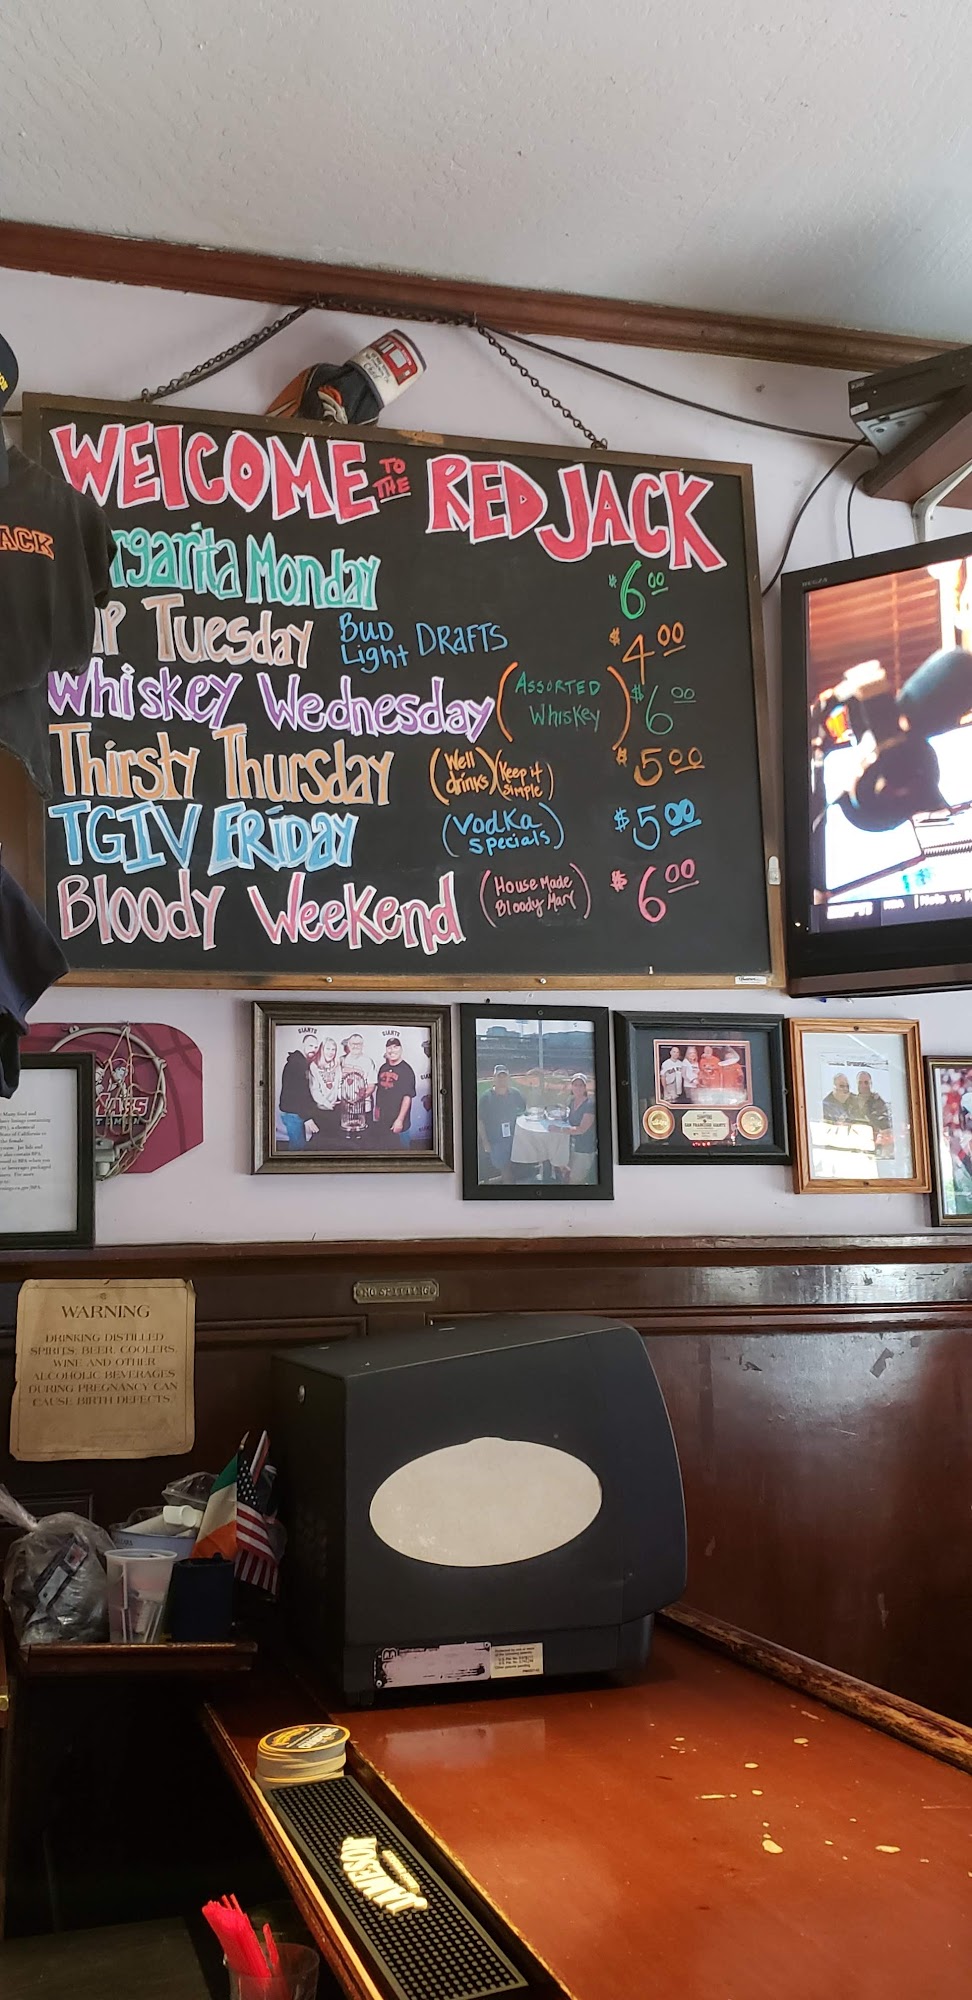 WELCOME TO THE RED JACK
rgarita Monday $6.00
Tuesday Bud Light DRAFTS $4.00
Whiskey Wednesday (ASSORTED Whiskey) $6.00
Thirsty Thursday (Well drinks) (Keep it simple) $5.00
TGIV FRiDAY (Vodka specials) $5.00
Bloody Weekend (House Made Bloody Mary) $6.00
ACK
GIANTS
GIANTS
SAN FRANCISCO GIANTS
NO SPITTING
WARNING
DRINKING DISTILLED
SPIRITS, BEER, COOLERS,
WINE AND OTHER
ALCOHOLIC BEVERAGES
DURING PREGNANCY CAN
CAUSE BIRTH DEFECTS
JAMESON